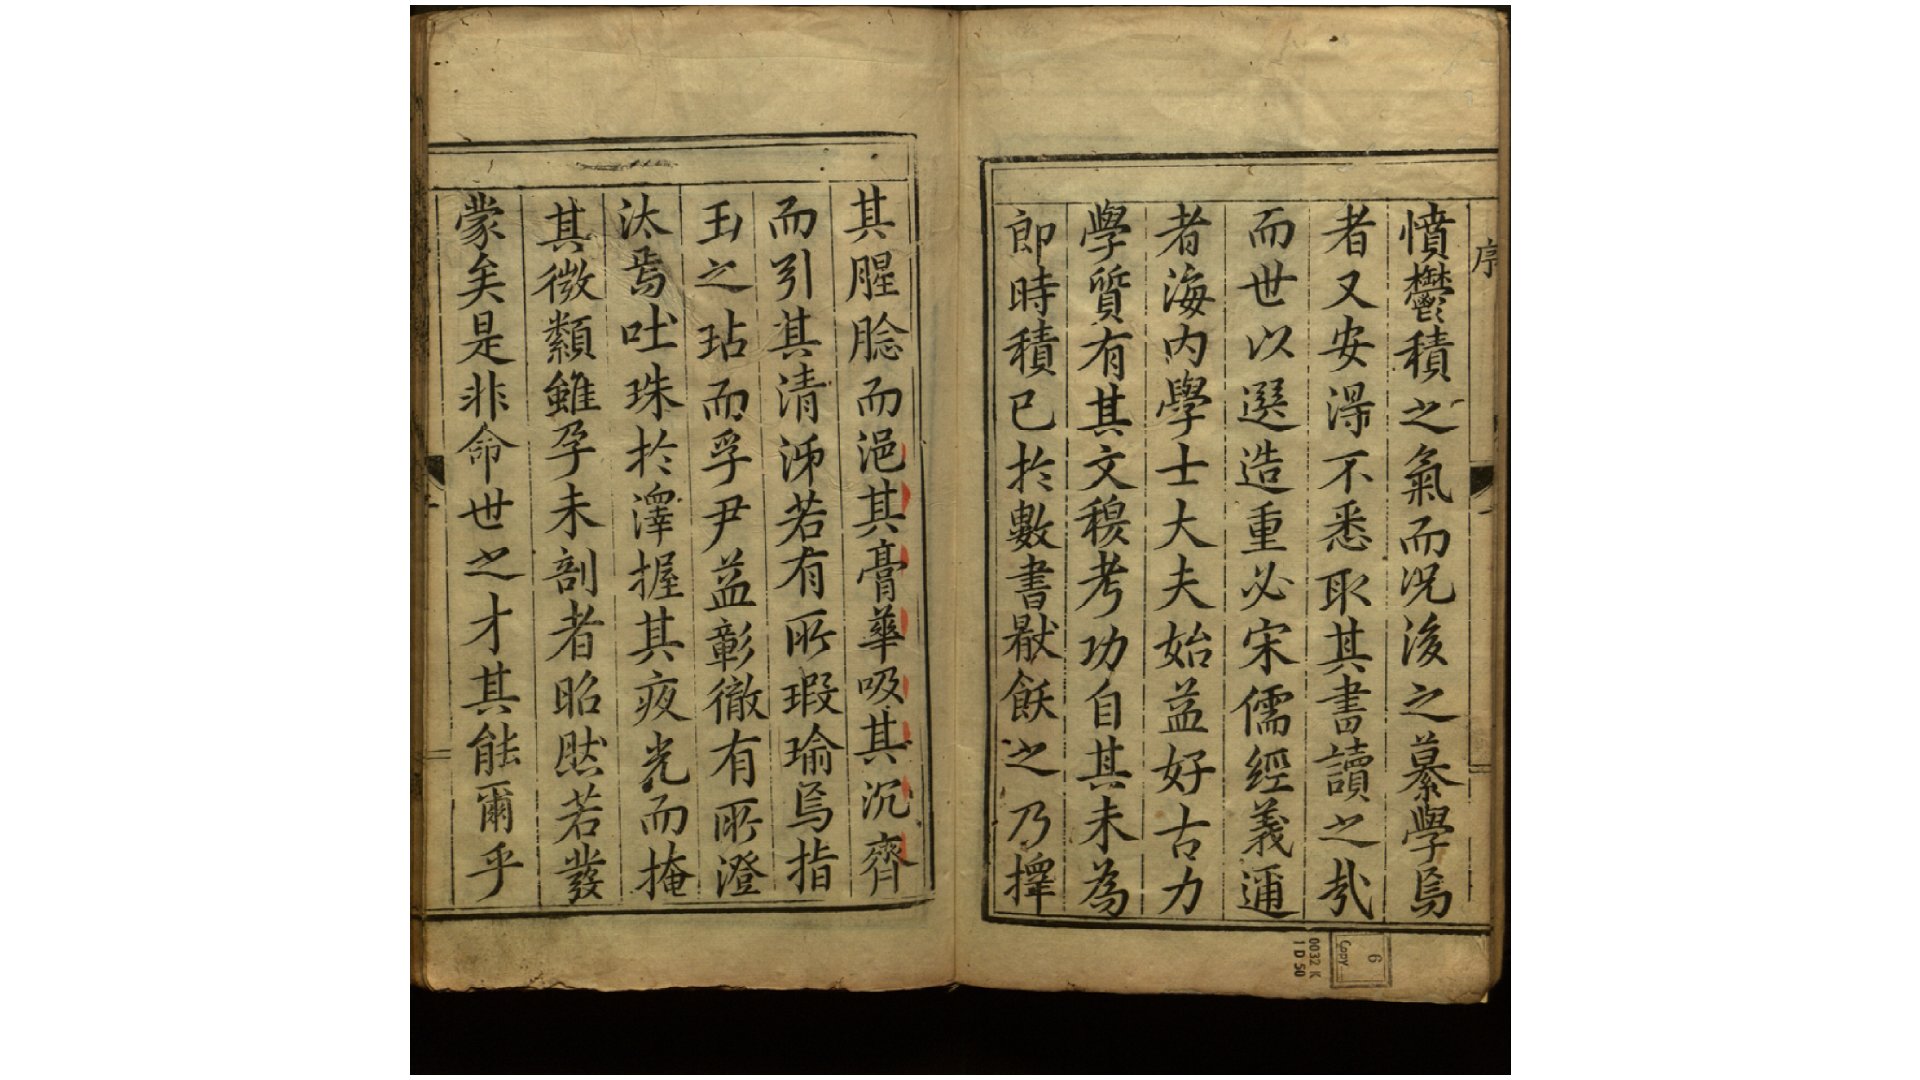 序
憤鬱積之氣而况後之慕學焉
者又安淂不悉取其書讀之㢤
而世以選造重必宋儒經義通
者海内學士大夫始益好古力
學質有其文稷考功自其未為
即時積已於數書猒飫之乃擇
其腥腍而浥其膏華吸其沉齊
而引其清泲若有所瑕瑜焉指
玉之玷而孚尹益彰徹有所澄
汰焉吐珠於澤握其夜光而掩
其微纇雖孕未剖者昭然若發
蒙矣是非命世之才其能爾乎
6
COPY
0032 K
1 D 50